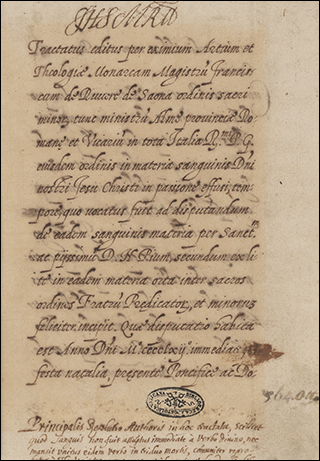 JHS MRA
Tractatus editus per eximium Artium et
Theologiæ Monarcam Magistrũ Francis-
cum de Ruvere de Saona ordinis sacri
minorũ, tunc ministrũ Almę provincię Ro-
mane et Vicariũ in tota Italia R.mi P. G.
eiusdem ordinis in materia sanguinis Dñi
nostri Jesu Christi in pasione effusi, tem-
pore quo vocatus fuit ad disputandum
de eadem sanguinis materia per Sanct.m
ac pijssimũ D. N. Pium, secundum ex li
te in eadem materia orta inter sacros
ordines Fratrũ Predicator, et minorũ
feliciter incipit. Que disputatio habita
est Anno Dñi M cccc lx ij immediate
festa natalia, presente Pontifice ac Do
564.01
Principalis Resolutio Authoris in hoc
quod Sanguis non fuit assumptus immediate à Verbo divino, nec
mansit unitus eidem verbo in triduo mortis, communiter